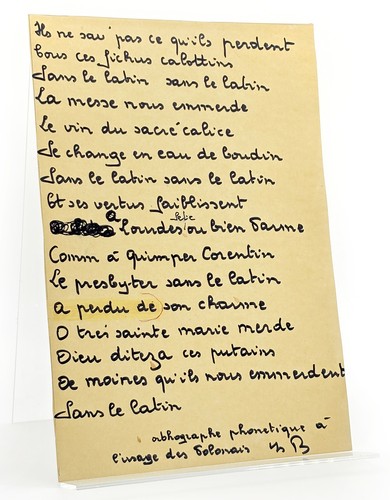 Ils ne sav' pas ce qu'ils perdent
Tous ces fichus calottins
Sans le latin sans le latin
La messe nous emmerde
Le vin du sacré calice
Se change en eau de boudin
Sans le latin sans le latin
Et ses vertus faiblissent
A Lourdes, ou bien Parme
Comm à quimper Corentin
Le presbyter sans le latin
a perdu de son charme
O tres sainte marie merde
Dieu dites a ces putains
De moines qu'ils nous emmerdent
Sans le latin
orthographe phonetique à
l'usage des Polonais